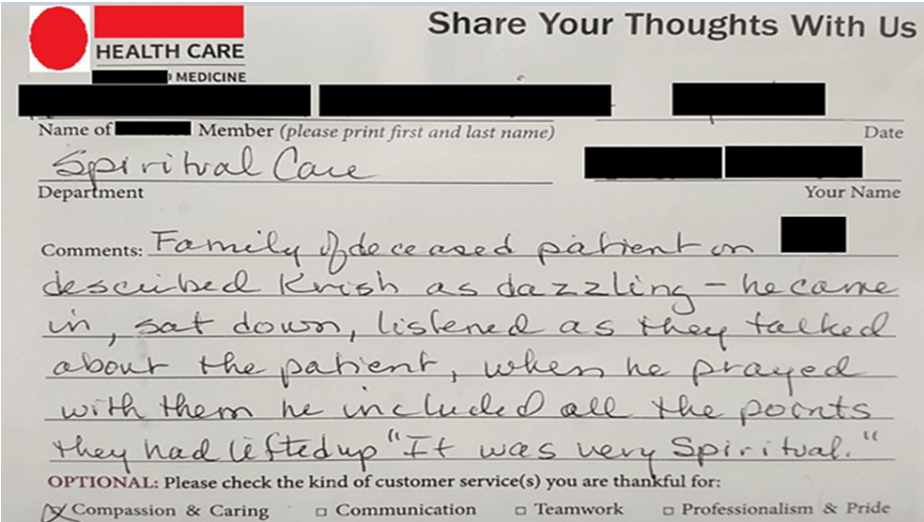 Share Your Thoughts With Us
HEALTH CARE
MEDICINE
Name of Member (please print first and last name) Date
Spiritual Care
Department Your Name
Comments: Family of deceased patient on
described Krish as dazzling – he came
in, sat down, listened as they talked
about the patient, when he prayed
with them he included all the points
they had lifted up "It was very Spiritual."
OPTIONAL: Please check the kind of customer service(s) you are thankful for:
Compassion & Caring □ Communication □ Teamwork □ Professionalism & Pride